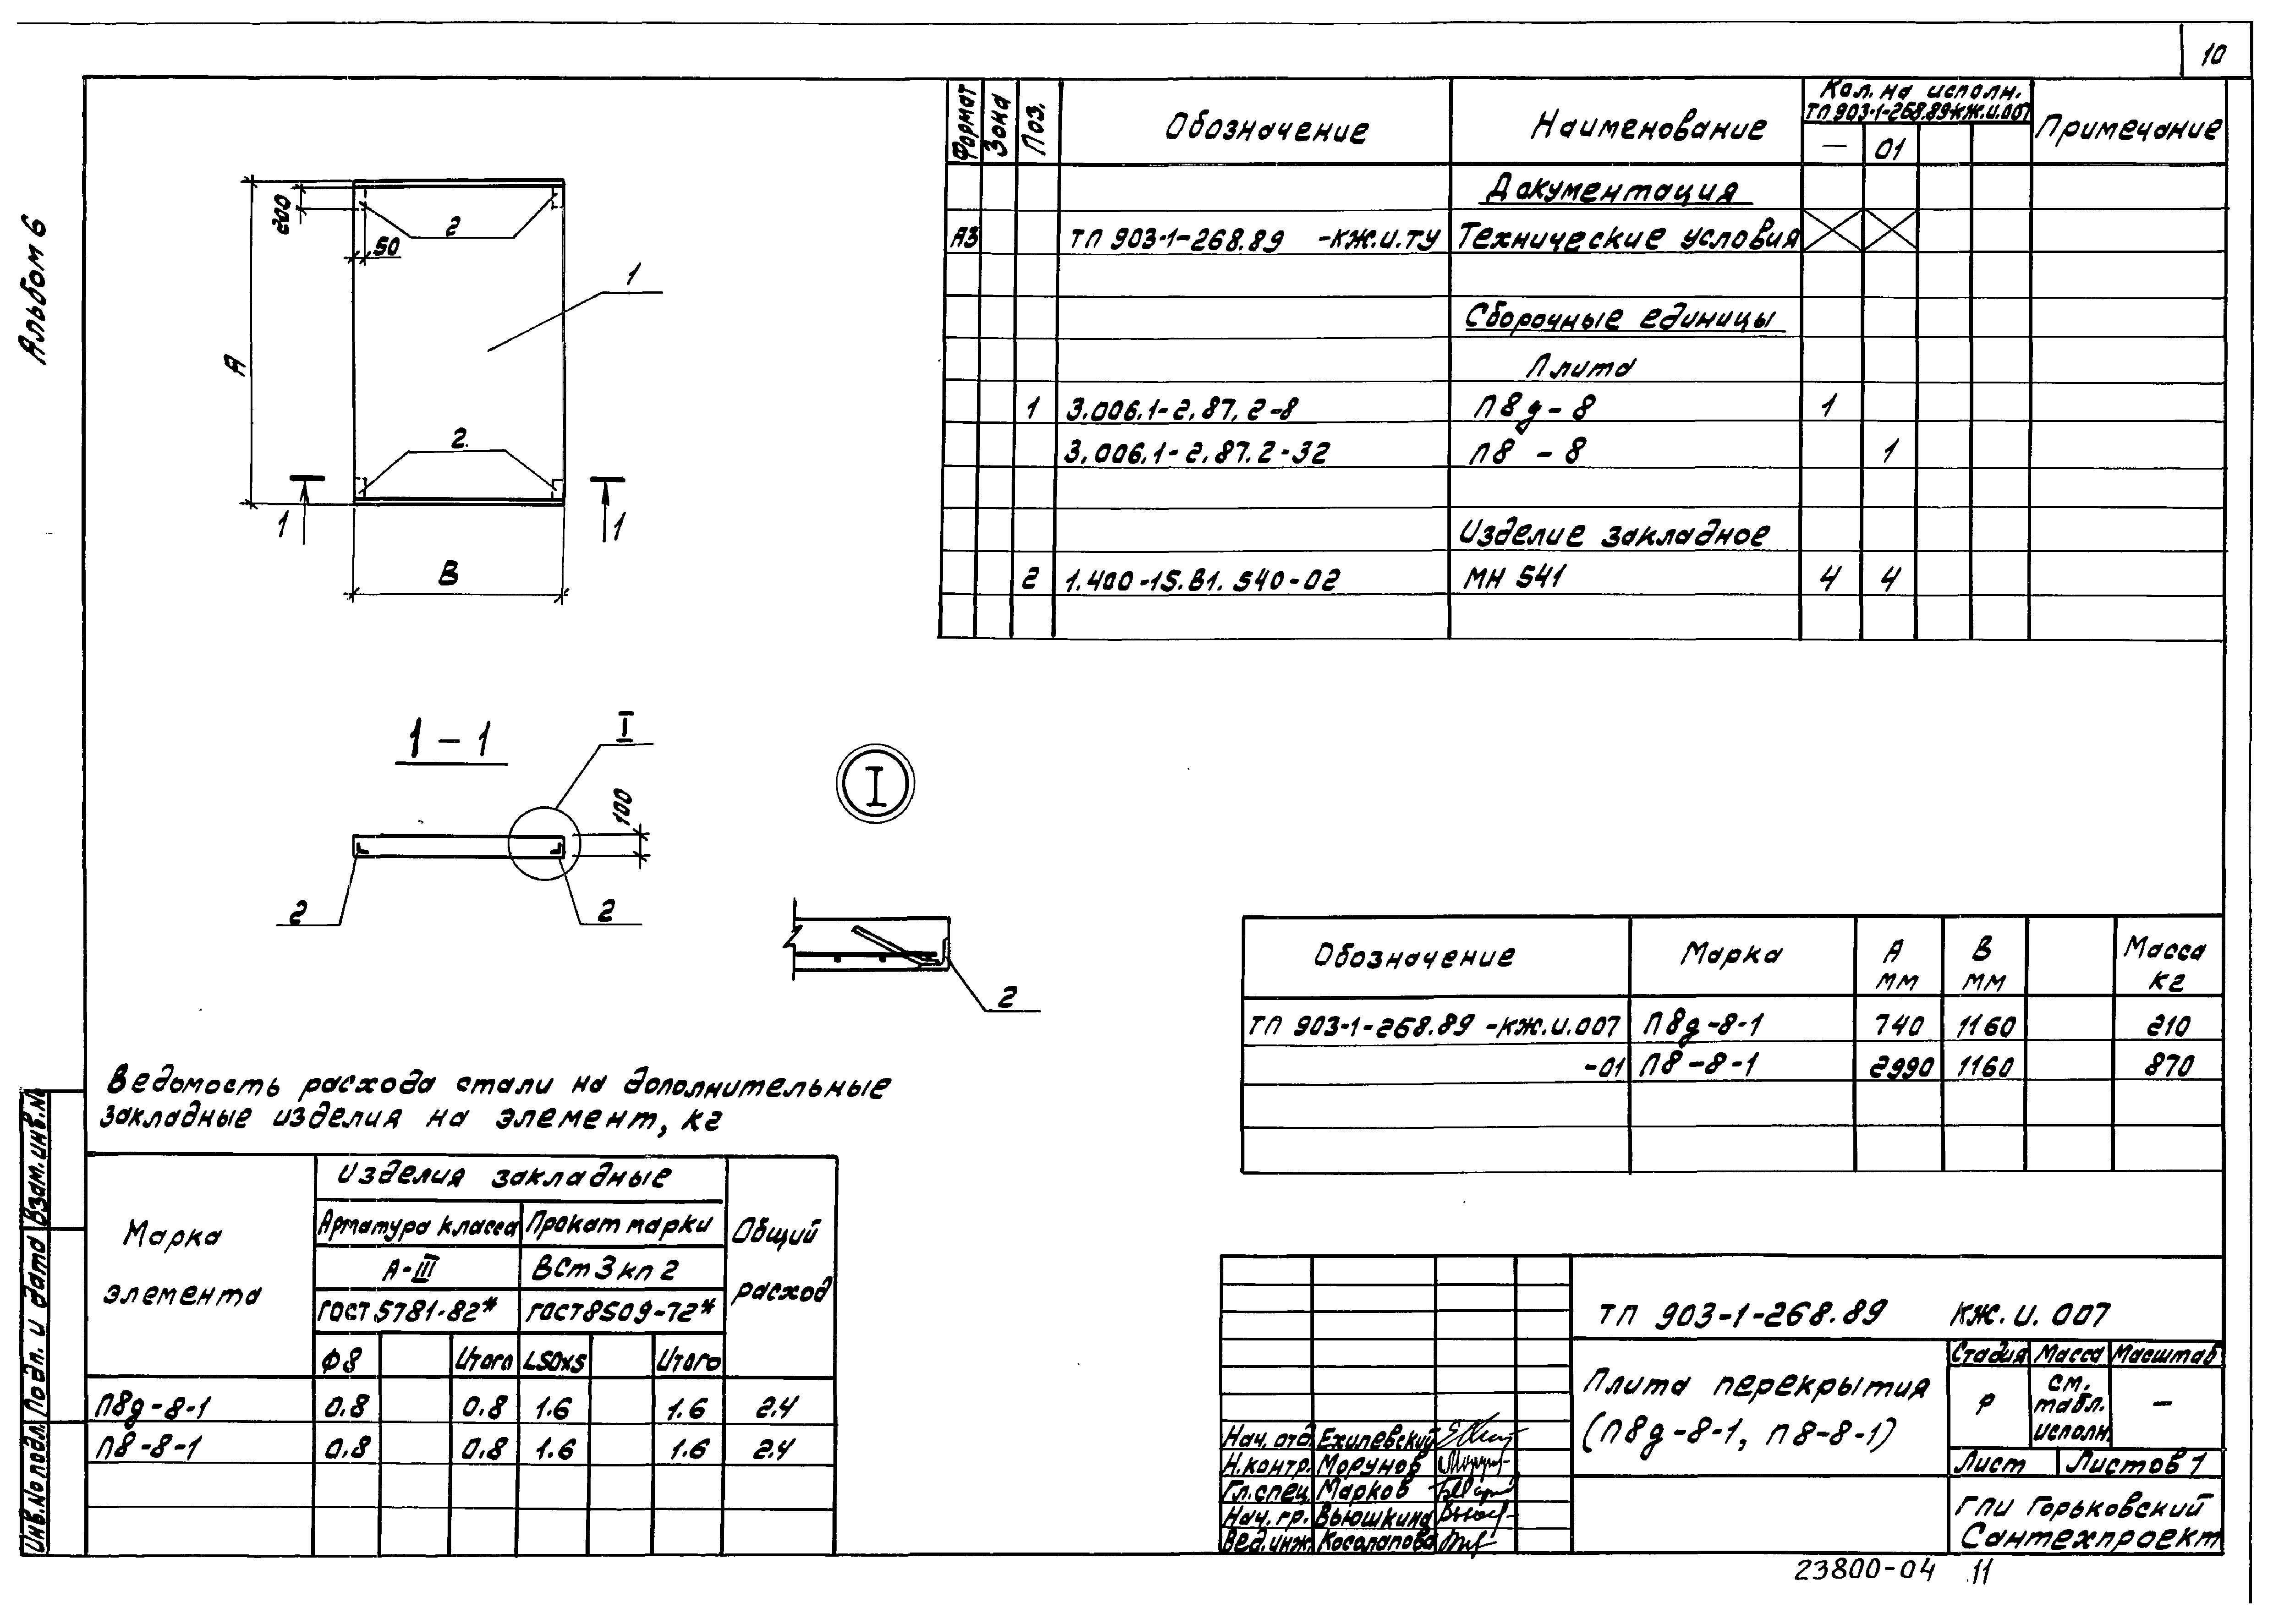 10
Альбом 6
Формат Зона Поз. Обозначение Наименование Кол. на исполн. ТП 903-1-268.89-КЖ.И.007 Примечание
— 01
Документация
А3 ТП 903-1-268.89 -КЖ.И.ТУ Технические условия
Сборочные единицы
Плита
1 3.006.1-2.87.2-8 П8д-8 1
3.006.1-2.87.2-32 П8 -8 1
Изделие закладное
2 1.400-15.В1.540-02 МН 541 4 4
А
200
50
2
1
2
1 1
В
1-1
I
100
2 2
I
2
Обозначение Марка А мм В мм Масса кг
ТП 903-1-268.89 -КЖ.И.007 П8д-8-1 740 1160 210
-01 П8-8-1 2990 1160 870
Ведомость расхода стали на дополнительные
закладные изделия на элемент, кг
Марка элемента Изделия закладные Общий расход
Арматура класса Прокат марки
А-III ВСт3кп2
ГОСТ 5781-82* ГОСТ 8509-72*
Ф8 Итого L50х5 Итого
П8д-8-1 0.8 0.8 1.6 1.6 2.4
П8-8-1 0.8 0.8 1.6 1.6 2.4
Взам.инв.№
Подп. и дата
Инв.№ подл.
ТП 903-1-268.89 КЖ.И.007
Плита перекрытия
(П8д-8-1, П8-8-1)
Стадия Масса Масштаб
Р см. табл. исполн. —
Лист Листов 1
Нач. отд. Ехилевский
Н.контр. Морунов
Гл.спец. Марков
Нач. гр. Вьюшкина
Вед.инж. Косолапова
ГПИ Горьковский
Сантехпроект
23800-04 11